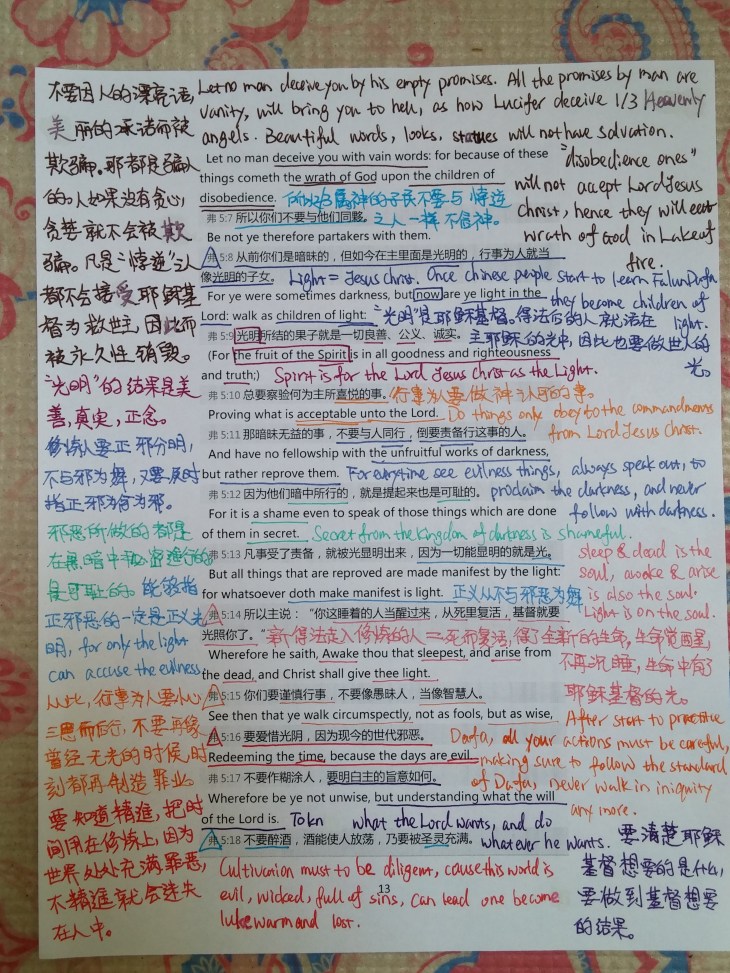 不要因人的漂亮话,
美丽的承诺而被
欺骗。耶都是骗人
的。人如果没有贪心,
贪婪就不会被欺
骗。凡是“悖逆”之人
都不会接受耶稣基
督为救世主,因此而
被永久性销毁。
“光明”的结果是美
善,真实,正念。
修炼人要正邪分明,
不与邪为舞,又要及时
指正邪为何为邪。
邪恶所做的都是
在黑暗中秘密进行的
是可耻的。能够指
正邪恶的一定是正义光
明, for only the light
can accuse the evilness
从此,行事为人要小心
三思而后行,不要再缘
曾经无光的时候,时
刻都再制造罪业。
要知道精進,把时
间用在修炼上,因为
世界处处充满罪恶,
不精進就会迷失
在人中。
Let no man deceive you by his empty promises. All the promises by man are
vanity, will bring you to hell, as how Lucifer deceive 1/3 Heavenly
angels. Beautiful words, looks, statues will not have salvation.
Let no man deceive you with vain words: for because of these
things cometh the wrath of God upon the children of
disobedience.
所以各属神的子民不要与悖逆
之人一样不信神。
"disobedience ones"
will not accept Lord Jesus
Christ, hence they will eat
wrath of God in Lake of
fire.
弗 5:7 所以你们不要与他们同夥。
Be not ye therefore partakers with them.
弗 5:8 从前你们是暗昧的,但如今在主里面是光明的,行事为人就当
像光明的子女。
Light = Jesus Christ. Once chinese people start to learn FalunDafa
they become children of
light.
For ye were sometimes darkness, but now are ye light in the
Lord: walk as children of light:
“光明”是耶稣基督。得法后的人就活在
主耶稣的光中,因此也要做世人的
光。
弗 5:9 光明所结的果子就是一切良善、公义、诚实。
(For the fruit of the Spirit is in all goodness and righteousness
and truth;)
Spirit is for the Lord Jesus Christ as the Light.
弗 5:10 总要察验何为主所喜悦的事。
行事为人要做神认可的事。
Proving what is acceptable unto the Lord.
Do things only obey to the commandments
from Lord Jesus Christ.
弗 5:11 那暗昧无益的事,不要与人同行,倒要责备行这事的人。
And have no fellowship with the unfruitful works of darkness,
but rather reprove them.
For everytime see evilness things, always speak out, to
proclaim the darkness, and never
follow with darkness.
弗 5:12 因为他们暗中所行的,就是提起来也是可耻的。
For it is a shame even to speak of those things which are done
of them in secret.
Secret from the Kingdom of darkness is shameful.
弗 5:13 凡事受了责备,就被光显明出来,因为一切能显明的就是光。
But all things that are reproved are made manifest by the light:
for whatsoever doth make manifest is light.
正义从不与邪恶为舞
sleep & dead is the
soul, awake & arise
is also the soul.
Light is on the soul.
弗 5:14 所以主说:“你这睡着的人当醒过来,从死里复活,基督就要
光照你了。”
新得法走入修炼的人=死而复活,得了全新的生命,生命觉醒,
不再沉睡,生命中有了
耶稣基督的光。
Wherefore he saith, Awake thou that sleepest, and arise from
the dead, and Christ shall give thee light.
弗 5:15 你们要谨慎行事,不要像愚昧人,当像智慧人。
See then that ye walk circumspectly, not as fools, but as wise,
After start to practise
Dafa, all your actions must be careful,
making sure to follow the standard
of Dafa, never walk in iniquity
any more.
弗 5:16 要爱惜光阴,因为现今的世代邪恶。
Redeeming the time, because the days are evil.
弗 5:17 不要作糊涂人,要明白主的旨意如何。
Wherefore be ye not unwise, but understanding what the will
of the Lord is.
To kn what the Lord wants, and do
whatever he wants.
要清楚耶稣
基督想要的是什么,
要做到基督想要
的结果。
弗 5:18 不要醉酒,酒能使人放荡,乃要被圣灵充满。
Cultivation must to be diligent, cause this world is
evil, wicked, full of sins, can lead one become
lukewarm and lost.
13